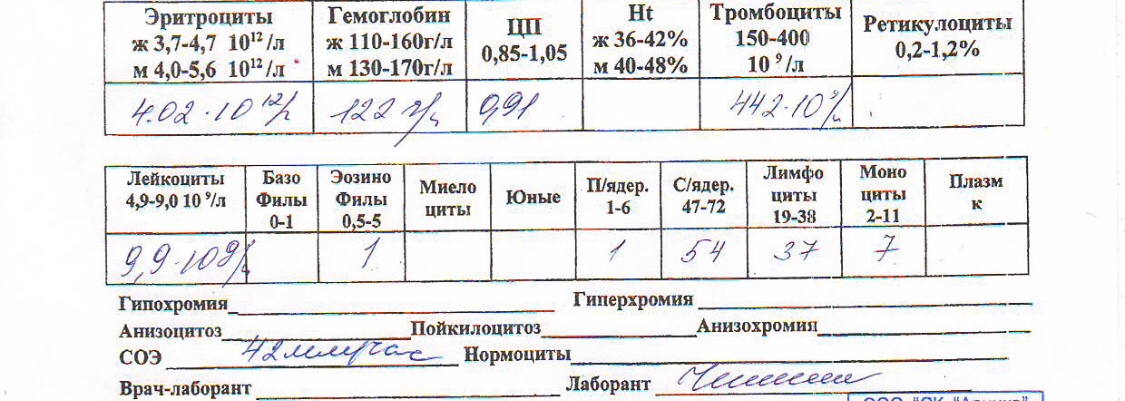 Эритроциты ж 3,7-4,7 10¹²/л м 4,0-5,6 10¹²/л
Гемоглобин ж 110-160г/л м 130-170г/л
ЦП 0,85-1,05
Ht ж 36-42% м 40-48%
Тромбоциты 150-400 10⁹/л
Ретикулоциты 0,2-1,2%
4.02·10¹²/л 122 г/л 0,91 442·10⁹/л
Лейкоциты 4,9-9,0 10⁹/л
Базо Филы 0-1
Эозино Филы 0,5-5
Миело циты
Юные
П/ядер. 1-6
С/ядер. 47-72
Лимфо циты 19-38
Моно циты 2-11
Плазм к
9,9·10⁹/л 1 1 54 37 7
Гипохромия Гиперхромия
Анизоцитоз Пойкилоцитоз Анизохромия
СОЭ 42 мм/час Нормоциты
Врач-лаборант Лаборант